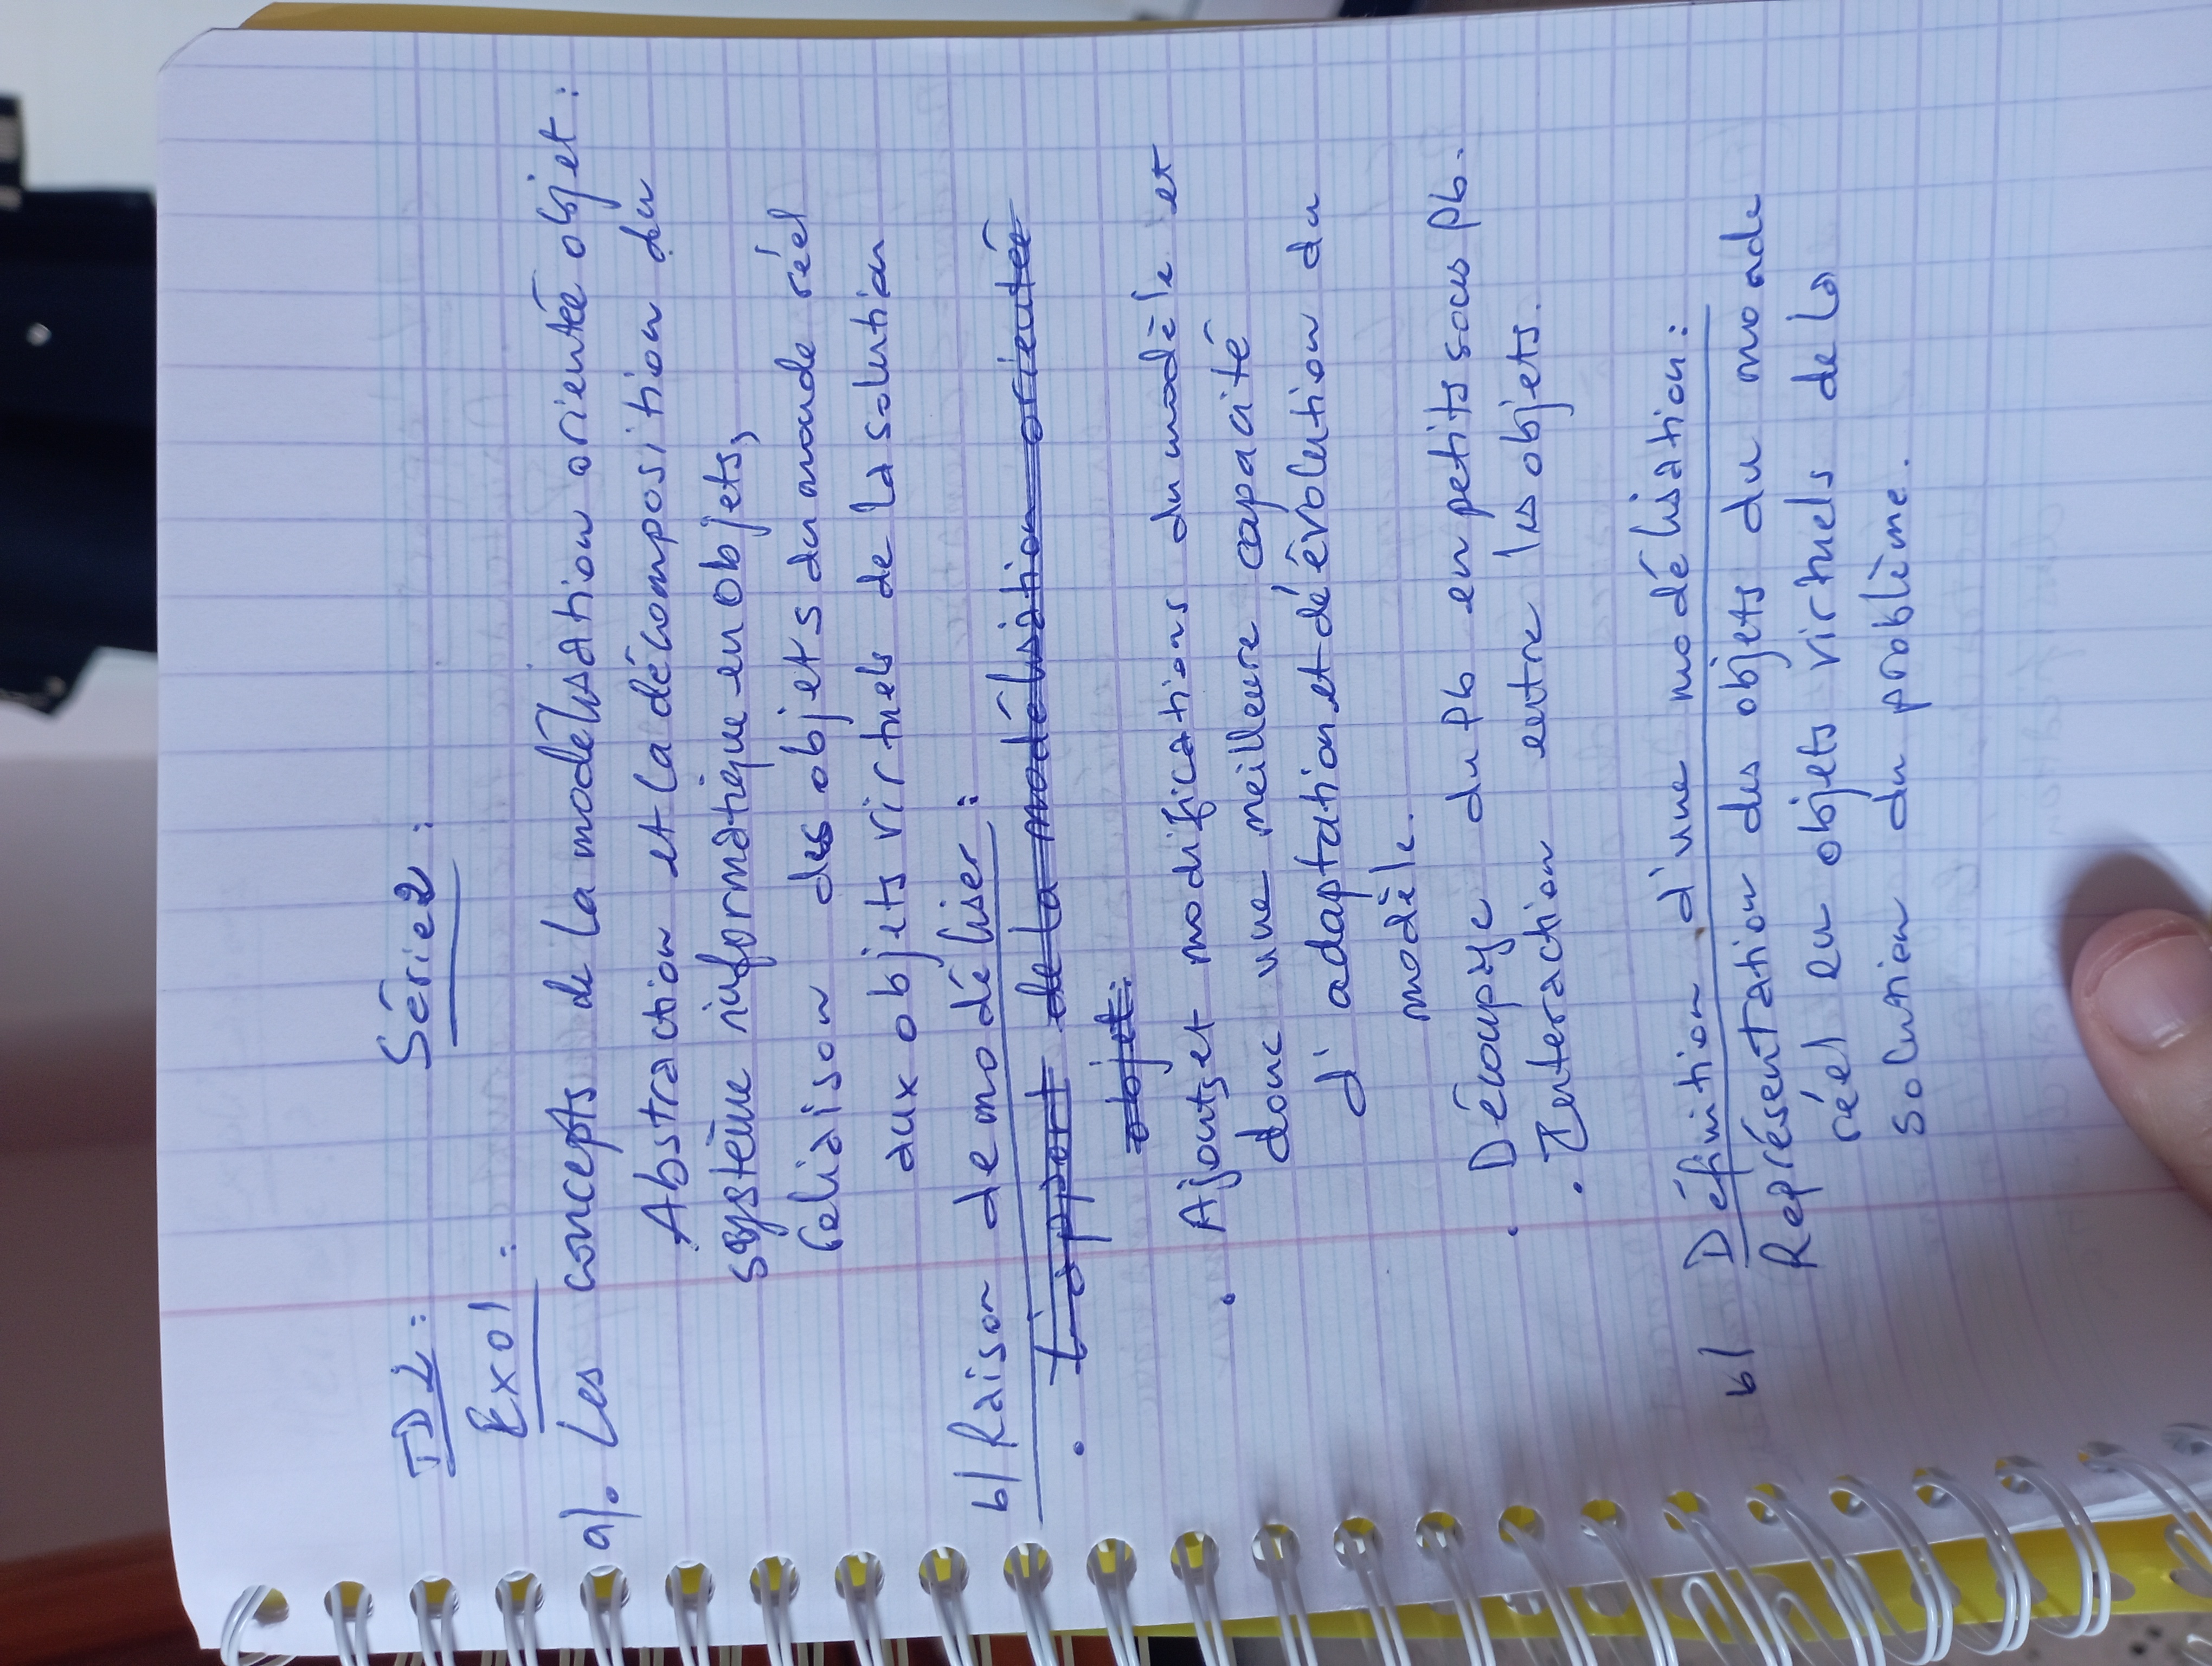 TD2 : Série2 :
Exo1 :
a). Les concepts de la modélisation orientée objet :
Abstraction et la décomposition du
système informatique en objets,
reliaison des objets du monde réel
aux objets virtuels de la solution
b/ Raison de modéliser :
. L'apport de la modélisation orientée
objet:
. Ajouts et modifications du modèle et
donc une meilleure capacité
d'adaptation et de évolution du
modèle.
. Découpage du Pb en petits sous Pb.
. Interaction entre les objets.
b/ Définition d'une modélisation :
Représentation des objets du monde
réel en objets virtuels de la
solution du problème.